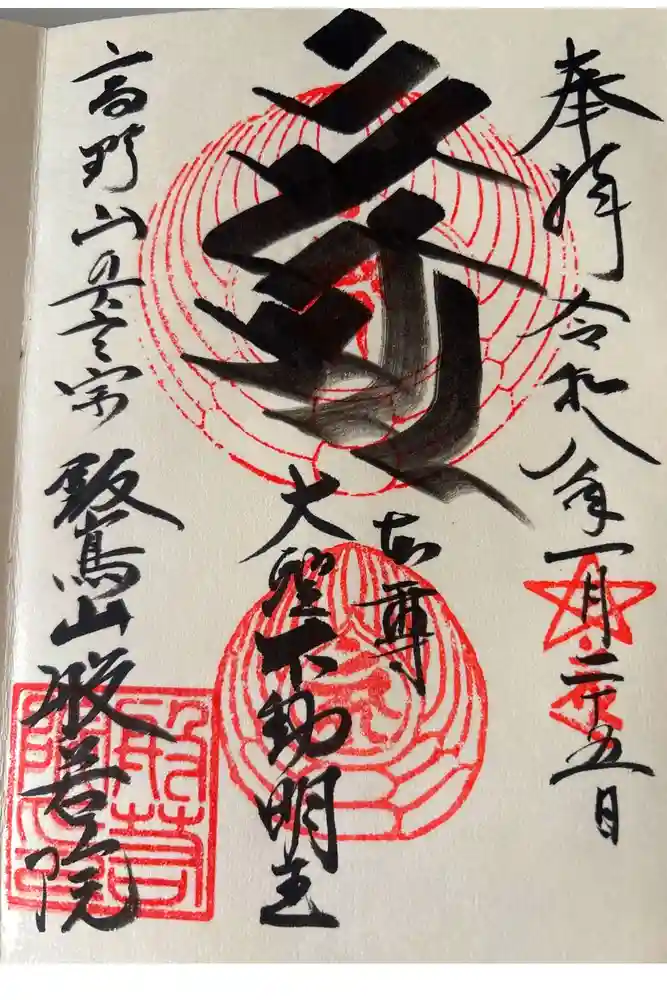 奉拝 令和八年一月二十五日
本尊
大聖不動明王
高野山真言宗 山般若院